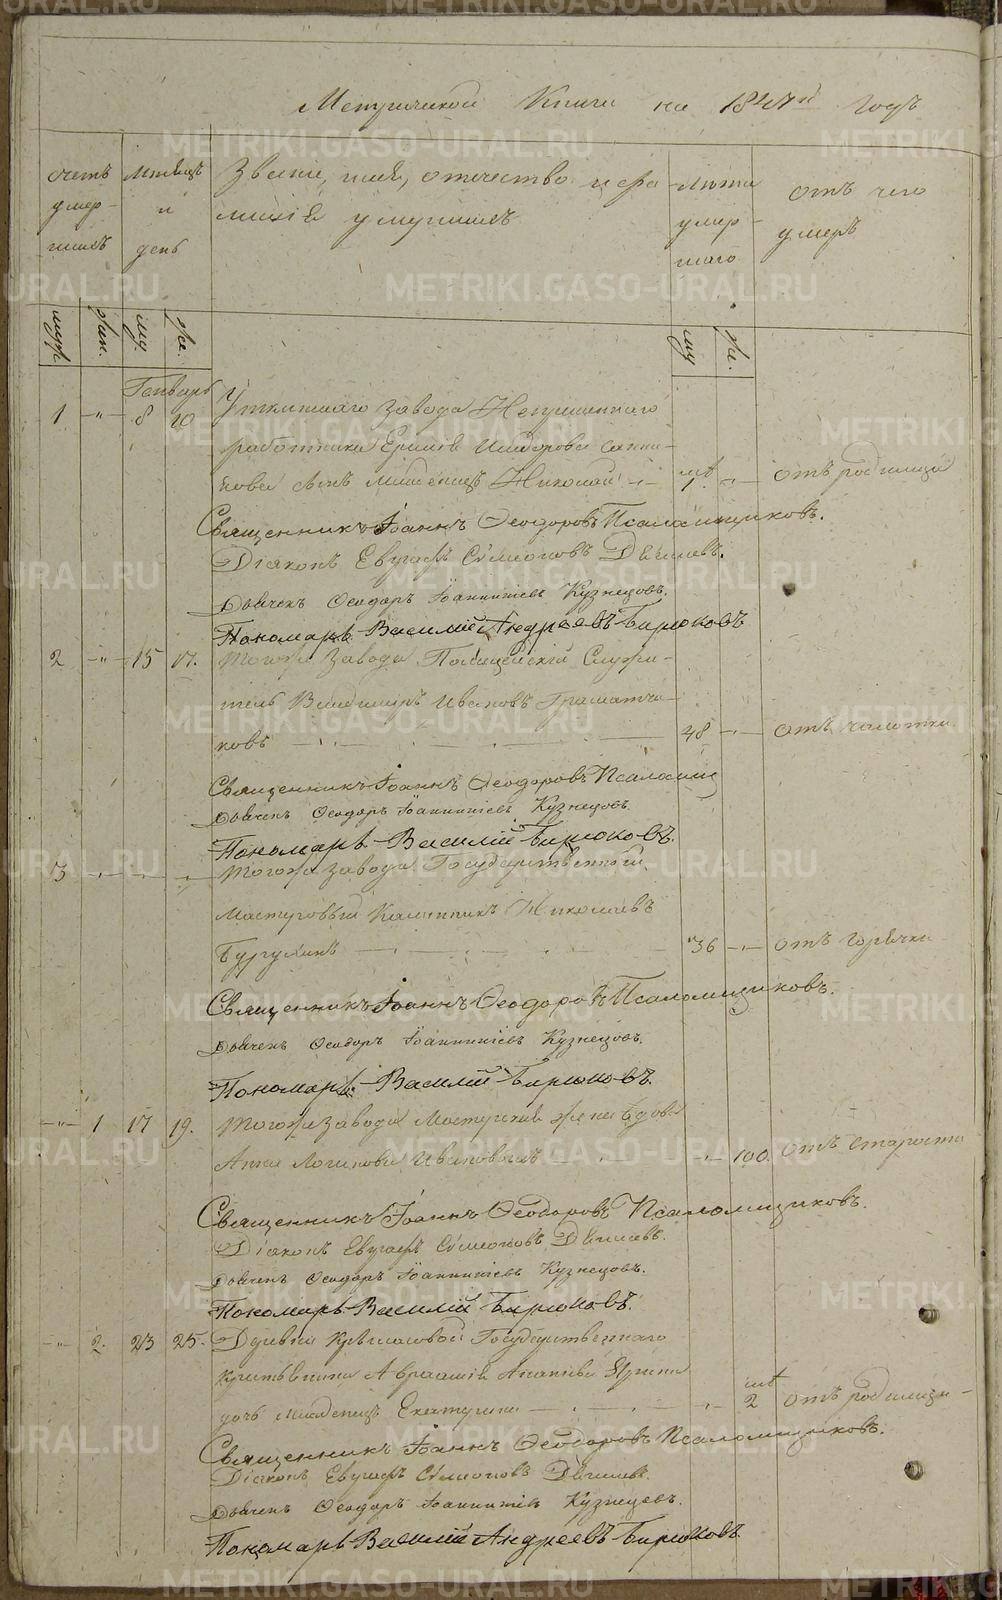 Метрической Книги на 1847й годъ
счетъ умер-шихъ
мѣсяцъ и день
Званіе, имя, отечество и фа-
милія умершихъ
лѣта умер-шаго
отъ чего умеръ
муж. жен. му. же. му же.
Генварь
1 -"- 8 10 Уткинскаго завода Непремѣннаго
работника
сынъ младенецъ Николай 1 отъ родимца
Священникъ Іоаннъ Ѳеодоровъ Псаломщиковъ.
Діаконъ Евграфъ Сѵмеоновъ
Дьячекъ Ѳеодоръ Іоанникіевъ Кузнецовъ.
Пономарь Василій Андреевъ Бирюковъ
2 -"- 15 17. Тогожъ завода Полицейскій Служи-
тель Владимиръ Ивановъ
ковъ 48 отъ чахотки
Священникъ Іоаннъ Ѳеодоровъ Псаломщ
Дьячекъ Ѳеодоръ Іоанникіевъ Кузнецовъ.
Пономарь Василій Бирюковъ.
3 Тогожъ завода Государственный
Мастеровый Калинникъ Николаевъ
36 отъ горячки
Священникъ Іоаннъ Ѳеодоровъ Псаломщиковъ.
Дьячекъ Ѳеодоръ Іоанникіевъ Кузнецовъ.
Пономарь Василій Бирюковъ.
-"- 1 17 19. Тогожъ завода Мастерская жена вдова
Анна Логинова 100 отъ старости
Священникъ Іоаннъ Ѳеодоровъ Псаломщиковъ.
Діаконъ Евграфъ Сѵмеоновъ
Дьячекъ Ѳеодоръ Іоанникіевъ Кузнецовъ.
Пономарь Василій Бирюковъ.
-"- 2. 23 25. Деревни Крыласовой Государственнаго
крестьянина Авраамія
дочь младенецъ Екатерина 2 отъ родимца
Священникъ Іоаннъ Ѳеодоровъ Псаломщиковъ.
Діаконъ Евграфъ Сѵмеоновъ
Дьячекъ Ѳеодоръ Іоанникіевъ Кузнецовъ.
Пономарь Василій Андреевъ Бирюковъ
METRIKI.GASO-URAL.RU